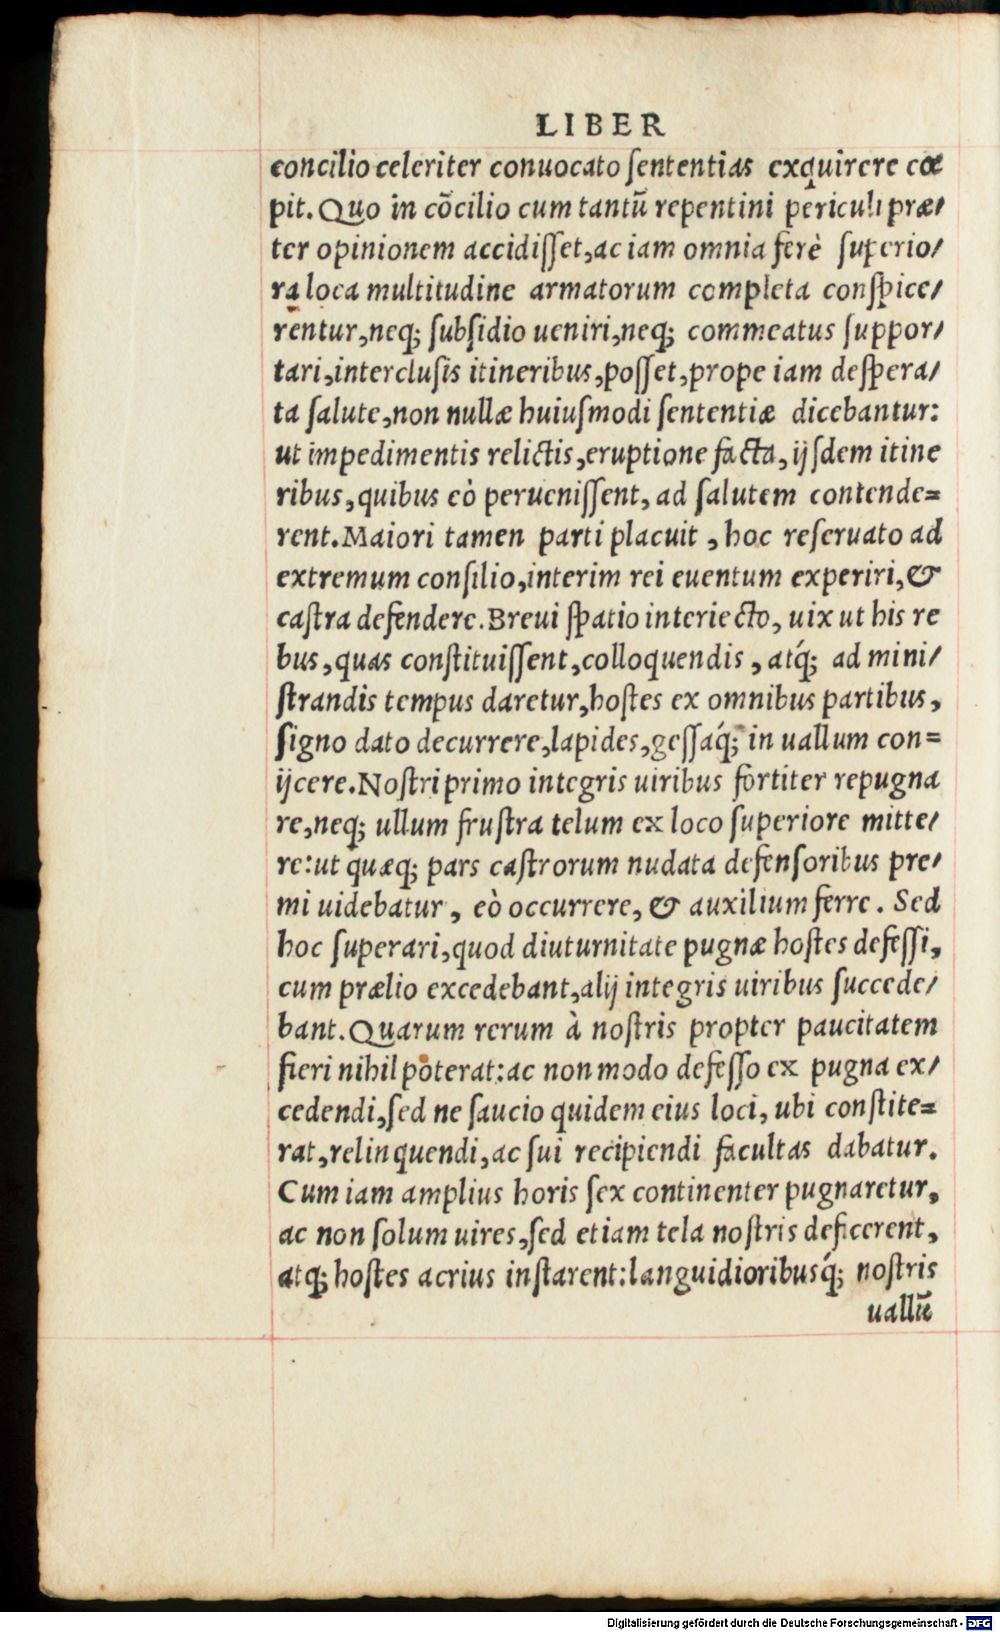 LIBER
concilio celeriter conuocato ſententias exquirere cœ
pit. Quo in cōcilio cum tantū repentini periculi præ/
ter opinionem accidiſſet, ac iam omnia ferè ſuperio/
ra loca multitudine armatorum completa conſpice/
rentur, neq; ſubſidio ueniri, neq; commeatus ſuppor/
tari, intercluſis itineribus, poſſet, prope iam deſpera/
ta ſalute, non nullæ huiuſmodi ſententiæ dicebantur:
ut impedimentis relictis, eruptione facta, ijſdem itine
ribus, quibus eò perueniſſent, ad ſalutem contende=
rent. Maiori tamen parti placuit, hoc reſeruato ad
extremum conſilio, interim rei euentum experiri, &
caſtra defendere. Breui ſpatio interiecto, uix ut his re
bus, quas conſtituiſſent, colloquendis, atq́; ad mini/
ſtrandis tempus daretur, hoſtes ex omnibus partibus,
ſigno dato decurrere, lapides, geſſaq́; in uallum con=
ijcere. Noſtri primo integris uiribus fortiter repugna
re, neq; ullum fruſtra telum ex loco ſuperiore mitte/
re: ut quæq; pars caſtrorum nudata defenſoribus pre/
mi uidebatur, eò occurrere, & auxilium ferre. Sed
hoc ſuperari, quod diuturnitate pugnæ hoſtes defeſſi,
cum prælio excedebant, alij integris uiribus ſuccede/
bant. Quarum rerum à noſtris propter paucitatem
fieri nihil poterat: ac non modo defeſſo ex pugna ex/
cedendi, ſed ne ſaucio quidem eius loci, ubi conſtite=
rat, relinquendi, ac ſui recipiendi facultas dabatur.
Cum iam amplius horis ſex continenter pugnaretur,
ac non ſolum uires, ſed etiam tela noſtris deficerent,
atq; hoſtes acrius inſtarent: languidioribusq́; noſtris
uallū
Digitalisierung gefördert durch die Deutsche Forschungsgemeinschaft - DFG